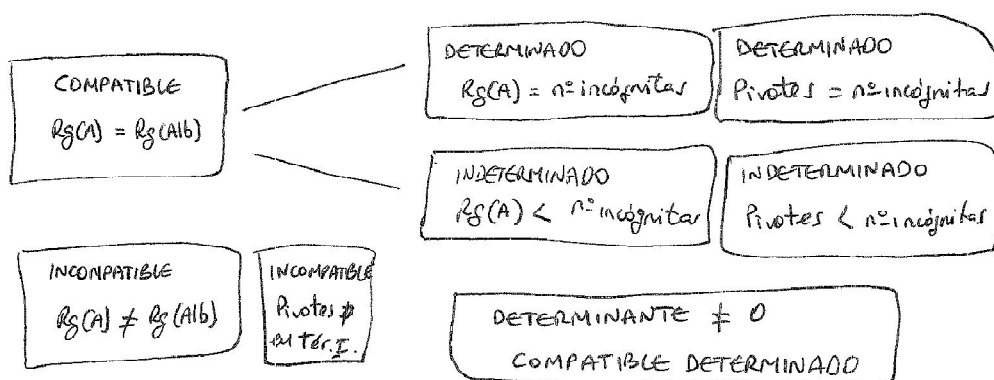 COMPATIBLE
Rg(A) = Rg(A|b)
DETERMINADO
Rg(A) = nº incógnitas
DETERMINADO
Pivotes = nº incógnitas
INDETERMINADO
Rg(A) < nº incógnitas
INDETERMINADO
Pivotes < nº incógnitas
INCOMPATIBLE
Rg(A) ≠ Rg(A|b)
INCOMPATIBLE
Pivotes
en tér. I.
DETERMINANTE ≠ 0
COMPATIBLE DETERMINADO